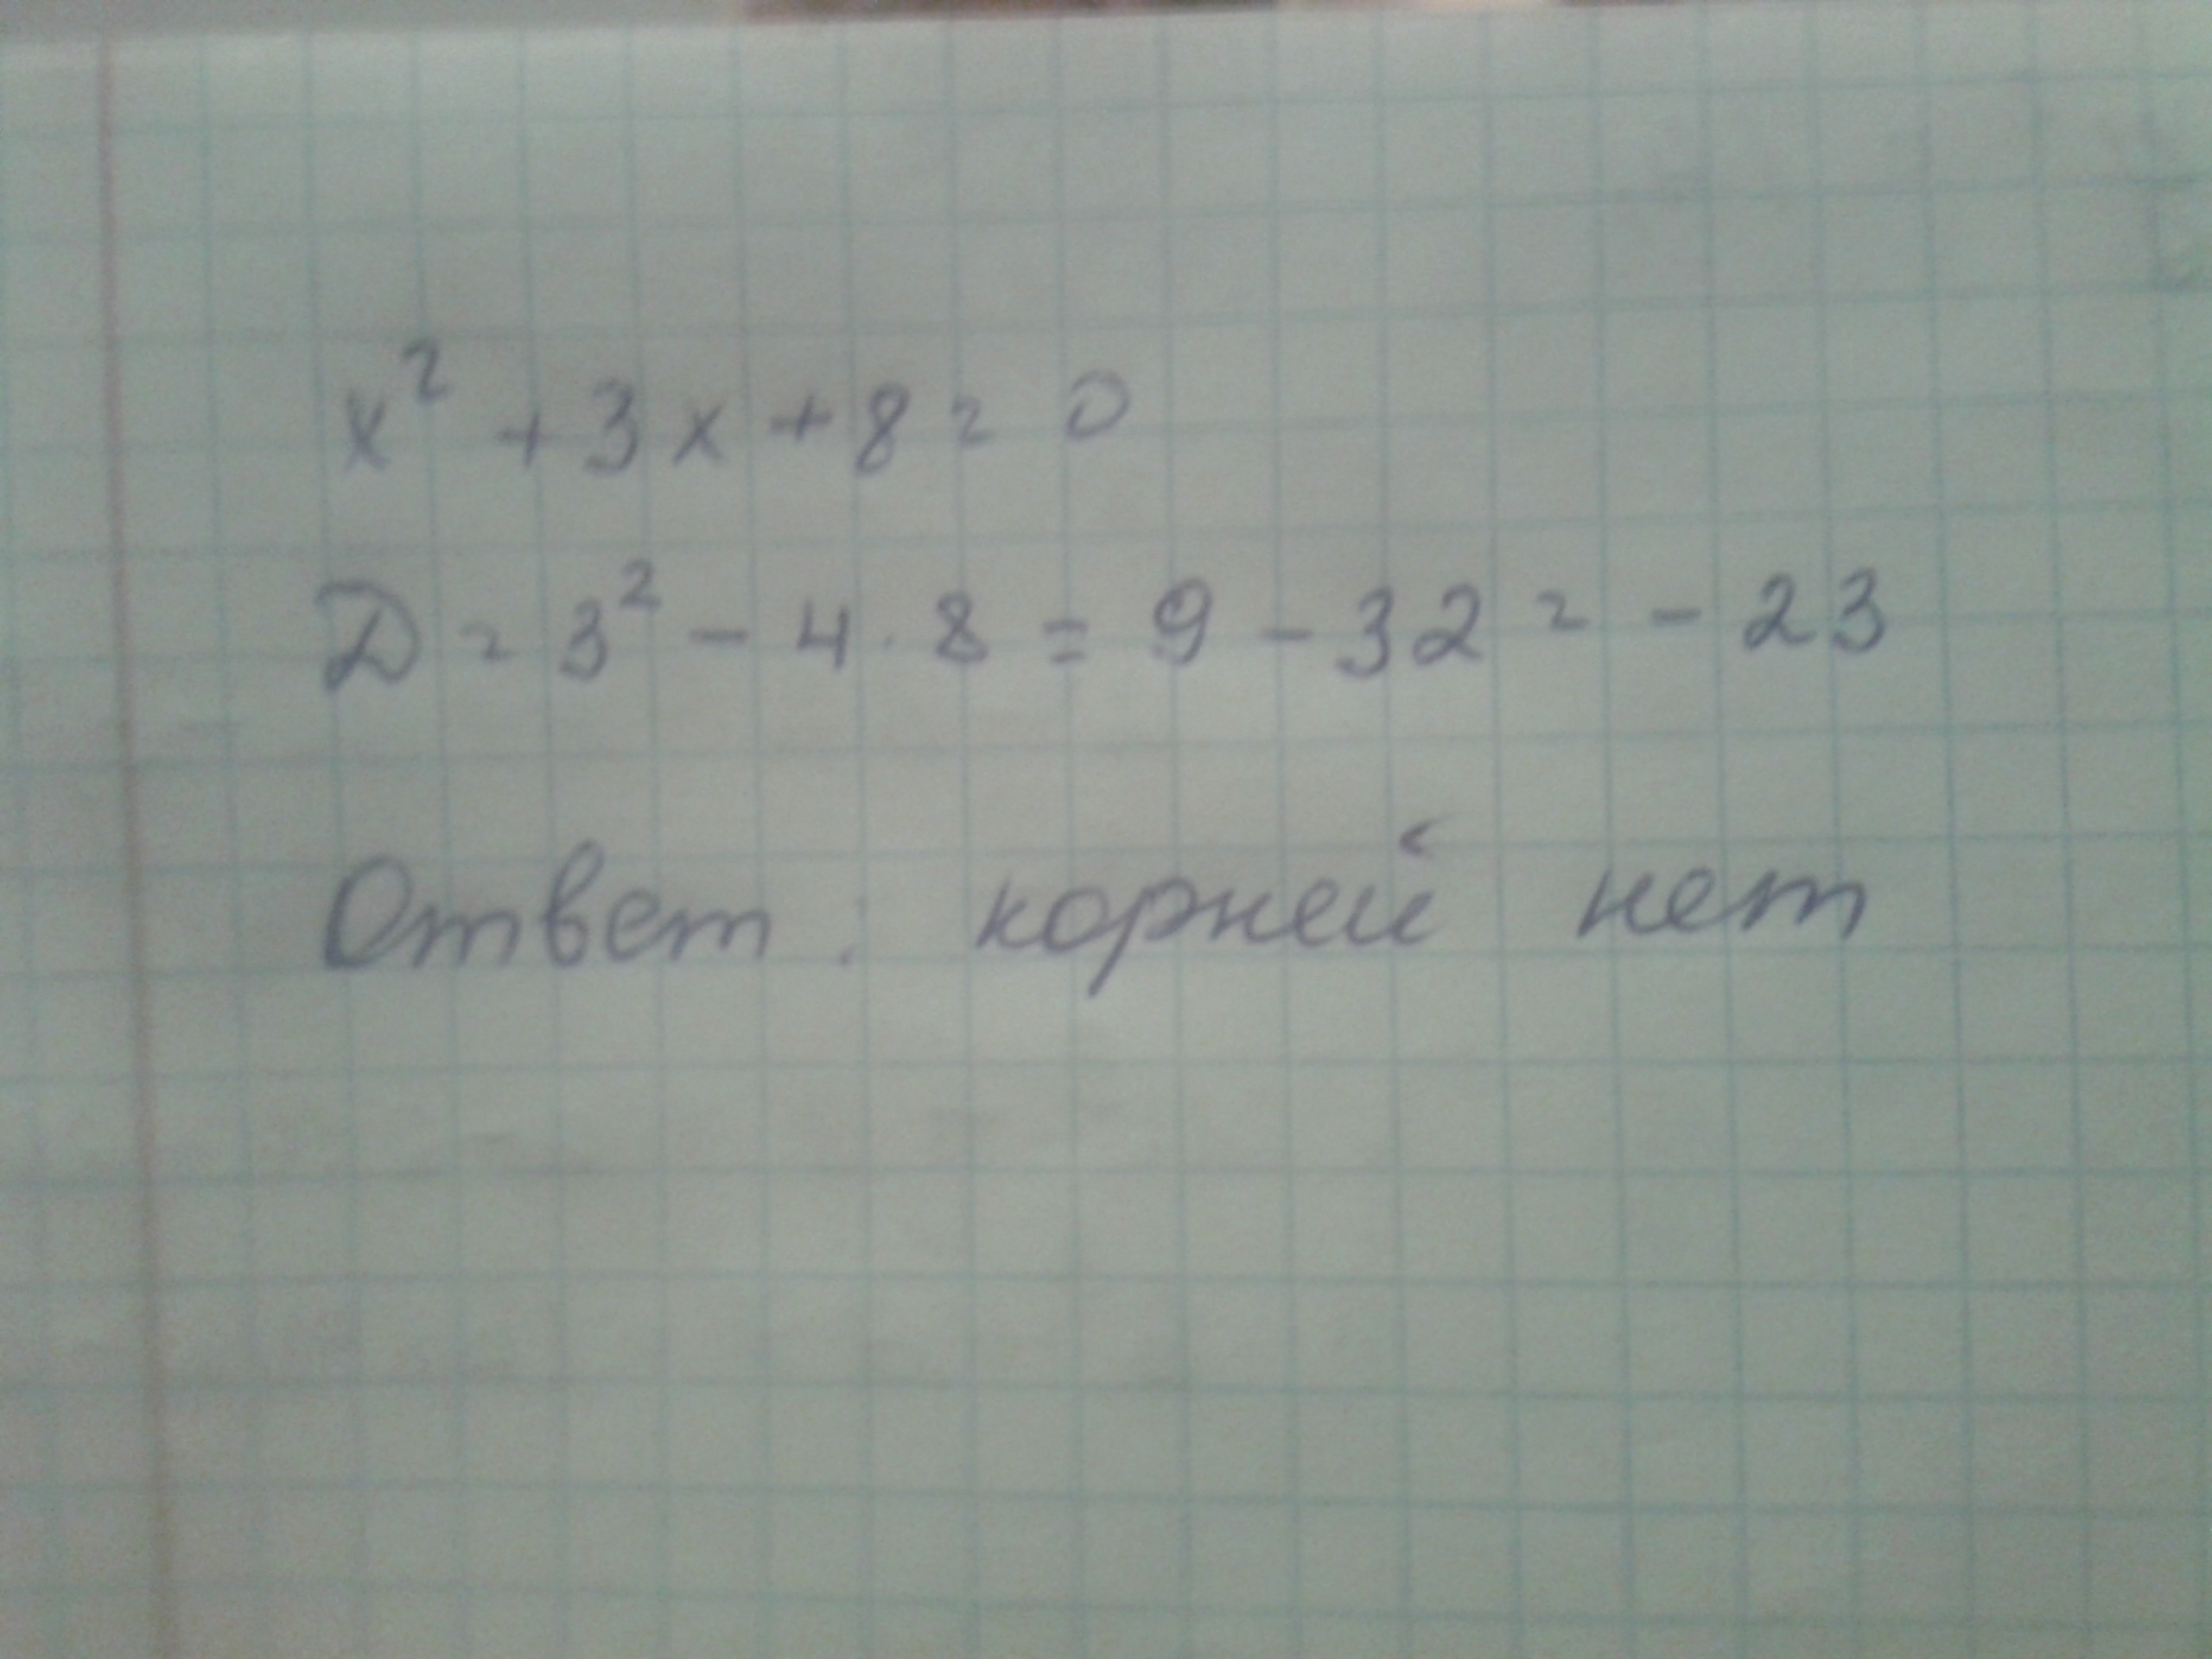 x² + 3x + 8 = 0
D = 3² - 4 · 8 = 9 - 32 = - 23
Ответ: корней нет